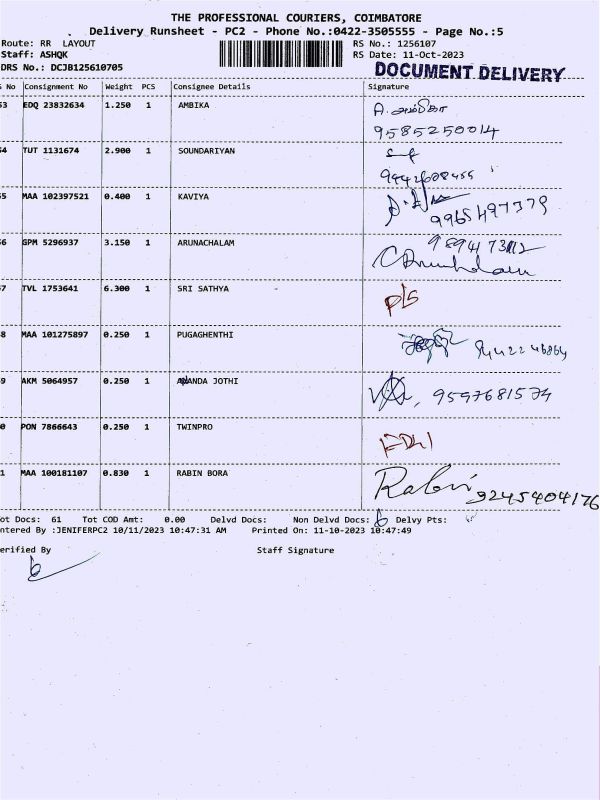 THE PROFESSIONAL COURIERS, COIMBATORE
Delivery Runsheet - PC2 - Phone No.:0422-3505555 - Page No.:5
Route: RR LAYOUT RS No.: 1256107
Staff: ASHQK RS Date: 11-Oct-2023
DRS No.: DCJB125610705 DOCUMENT DELIVERY
S No Consignment No Weight PCS Consignee Details Signature
53 EDQ 23832634 1.250 1 AMBIKA A. அம்பிகா
9585250014
54 TUT 1131674 2.900 1 SOUNDARIYAN
9942608455
55 MAA 102397521 0.400 1 KAVIYA
9965497379
56 GPM 5296937 3.150 1 ARUNACHALAM
C Arunachalam
57 TVL 1753641 6.300 1 SRI SATHYA P/S
8 MAA 101275897 0.250 1 PUGAGHENTHI
9442246864
9 AKM 5064957 0.250 1 ANANDA JOTHI 9597681574
0 PON 7866643 0.250 1 TWINPRO
1 MAA 100181107 0.830 1 RABIN BORA Rabin
9245404176
ot Docs: 61 Tot COD Amt: 0.00 Delvd Docs: Non Delvd Docs: 6 Delvy Pts:
ntered By :JENIFERPC2 10/11/2023 10:47:31 AM Printed On: 11-10-2023 10:47:49
erified By Staff Signature